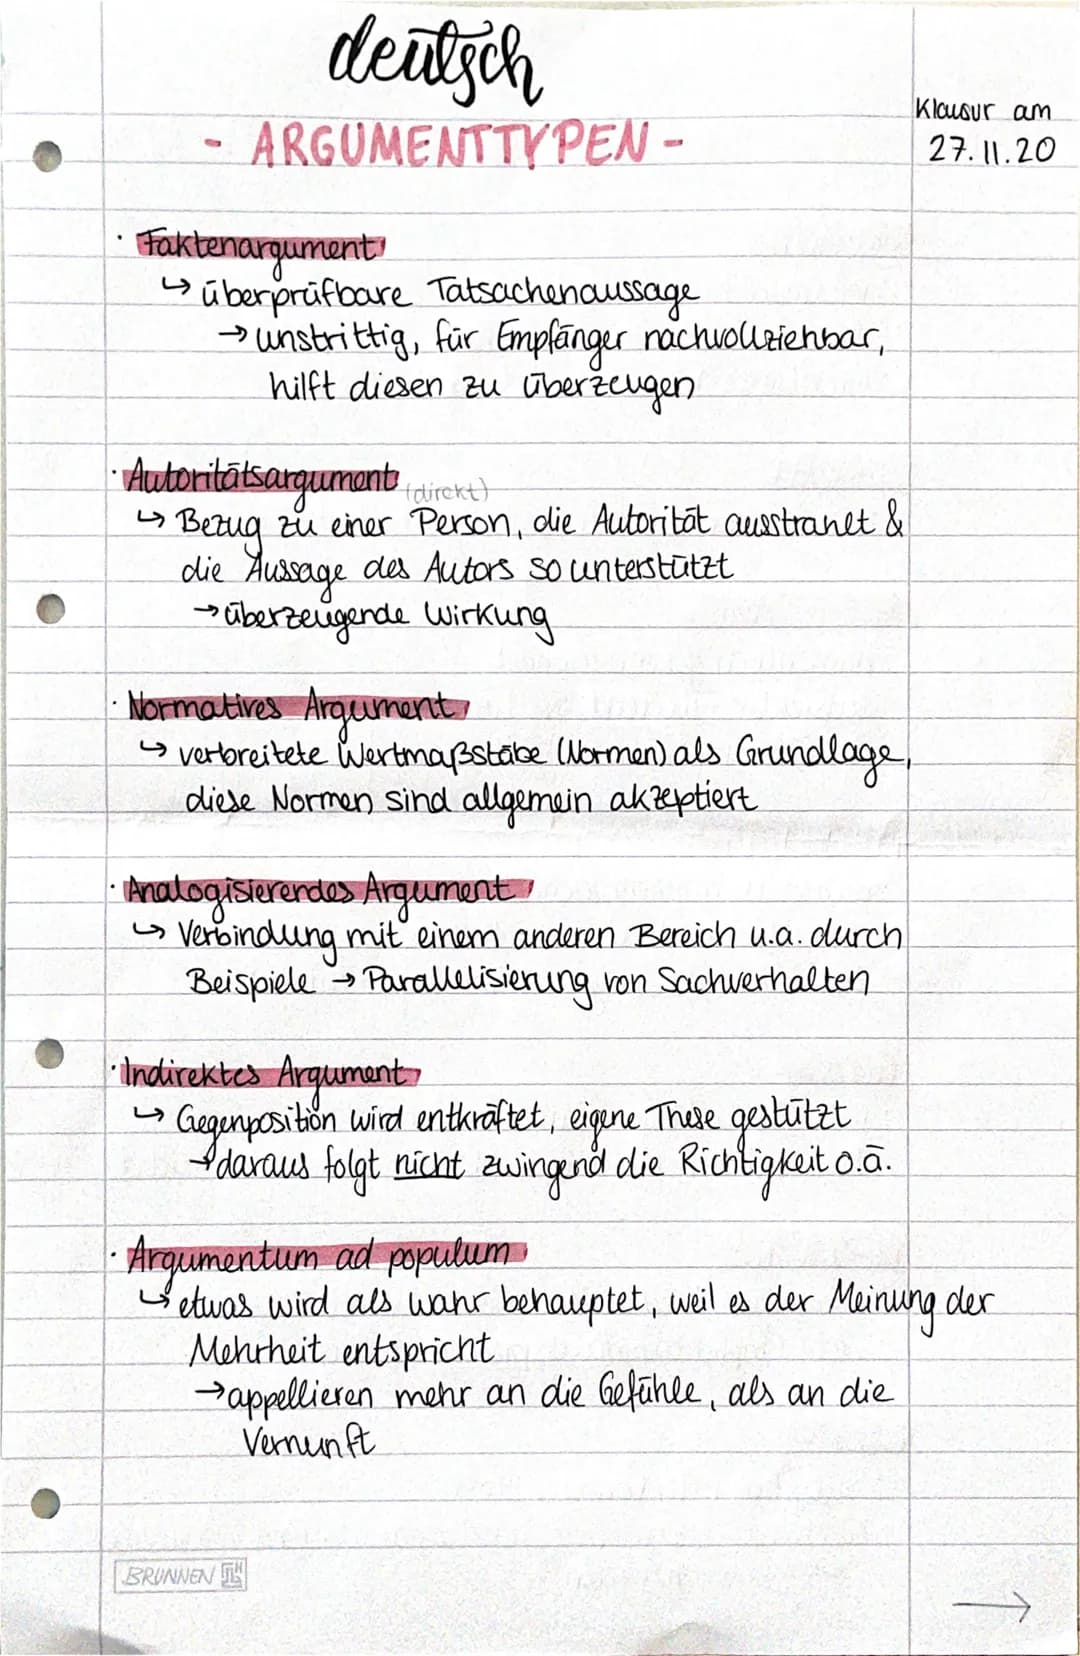 deutsch
- ARGUMENTTYPEN -
Klausur am
27.11.20
· Faktenargument
↳ überprüfbare Tatsachenaussage
→ unstrittig, für Empfänger nachvollziehbar,
hilft diesen zu überzeugen
· Autoritätsargument (direkt)
↳ Bezug zu einer Person, die Autorität ausstrahlt &
die Aussage des Autors so unterstützt
→ überzeugende Wirkung
· Normatives Argument
↳ verbreitete Wertmaßstäbe (Normen) als Grundlage,
diese Normen sind allgemein akzeptiert
· Analogisierendes Argument
↳ Verbindung mit einem anderen Bereich u.a. durch
Beispiele → Parallelisierung von Sachverhalten
· Indirektes Argument
↳ Gegenposition wird entkräftet, eigene These gestützt
→ daraus folgt nicht zwingend die Richtigkeit o.ä.
· Argumentum ad populum
↳ etwas wird als wahr behauptet, weil es der Meinung der
Mehrheit entspricht
→ appellieren mehr an die Gefühle, als an die
Vernunft
BRUNNEN
→